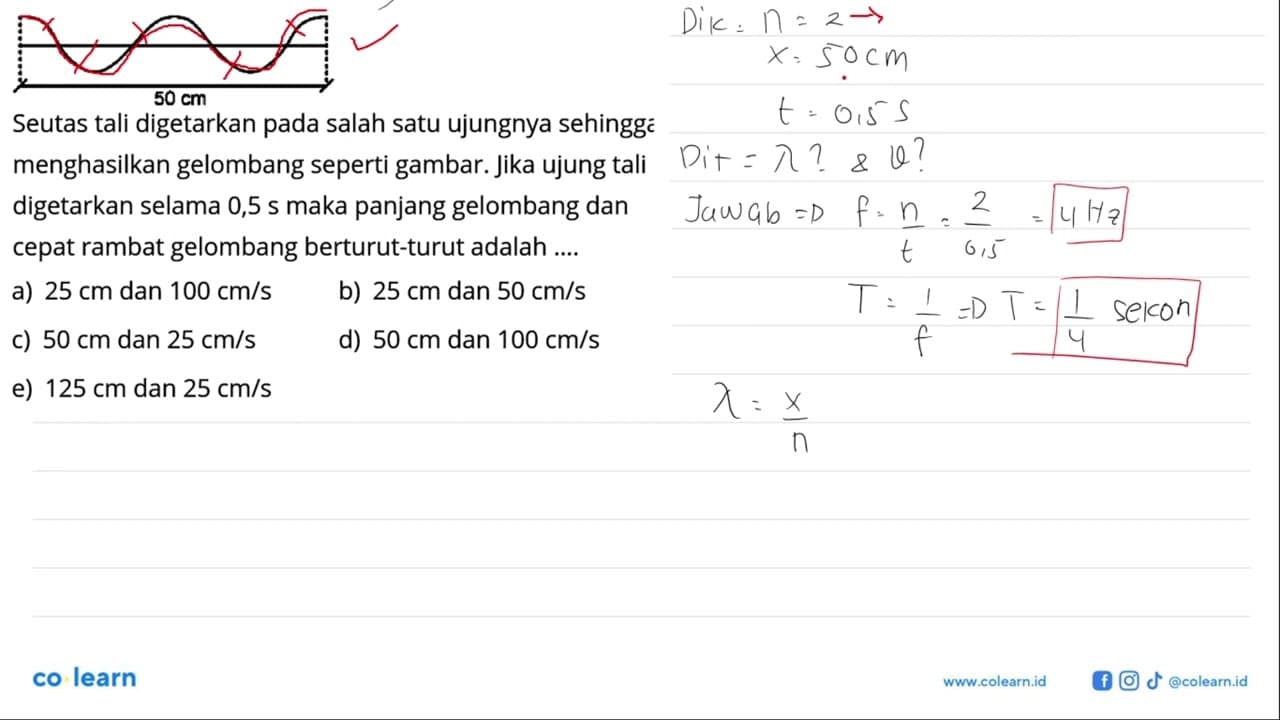 50 cm
Seutas tali digetarkan pada salah satu ujungnya sehingga
menghasilkan gelombang seperti gambar. Jika ujung tali
digetarkan selama 0,5 s maka panjang gelombang dan
cepat rambat gelombang berturut-turut adalah ....
a) 25 cm dan 100 cm/s b) 25 cm dan 50 cm/s
c) 50 cm dan 25 cm/s d) 50 cm dan 100 cm/s
e) 125 cm dan 25 cm/s
Dik = n = 2 →
x = 50 cm
t = 0,5 s
Dit = λ? & v?
Jawab => f = n/t = 2/0,5 = 4 Hz
T = 1/f => T = 1/4 sekon
λ = x/n
co learn
www.colearn.id @colearn.id